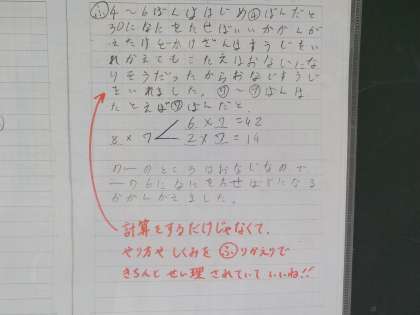 ㋫4〜6ばんははじめ④ばんだと
30になにをたせばいいかかんが
えたけどかけざんはすうじをい
れかえてもこたえはおなじにな
りそうだったからおなじすうじ
をいれました。⑦〜⑨ばんは
たとえば⑦ばんだと
6×7=42
8×7
2×7=14
のところはおなじなので
になにをたせば になる
かかんがえました。
計算をするだけじゃなくて、
やり方や しくみを ㋫りかえりで
きちんと せい理 されていて いいね!!